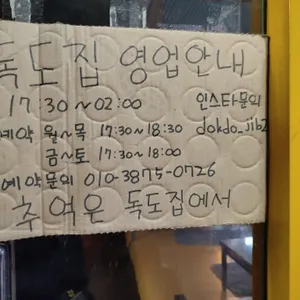 독도집 영업안내
17:30~02:00 인스타문의
예약 월~목 17:30~18:30 dokdo_jib2
금~토 17:30~18:00
예약문의 010-3875-0726
추억은 독도집에서